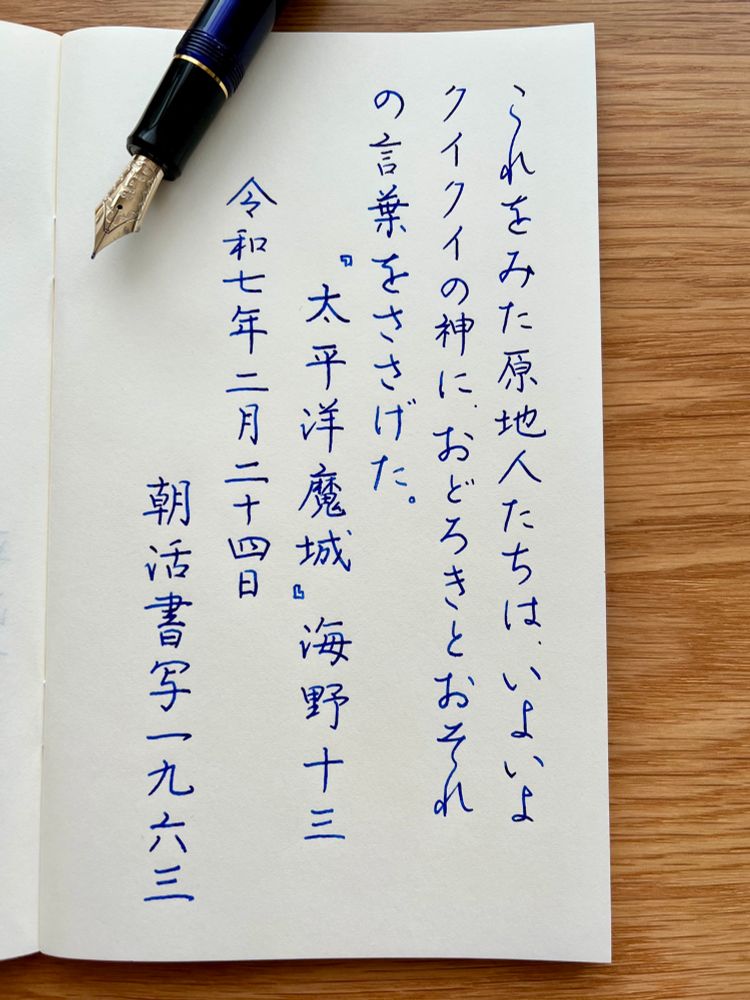 これをみた原地人たちは、いよいよ
クイクイの神に、おどろきとおそれ
の言葉をささげた。
『太平洋魔城』海野十三
令和七年二月二十四日
朝活書写一九六三